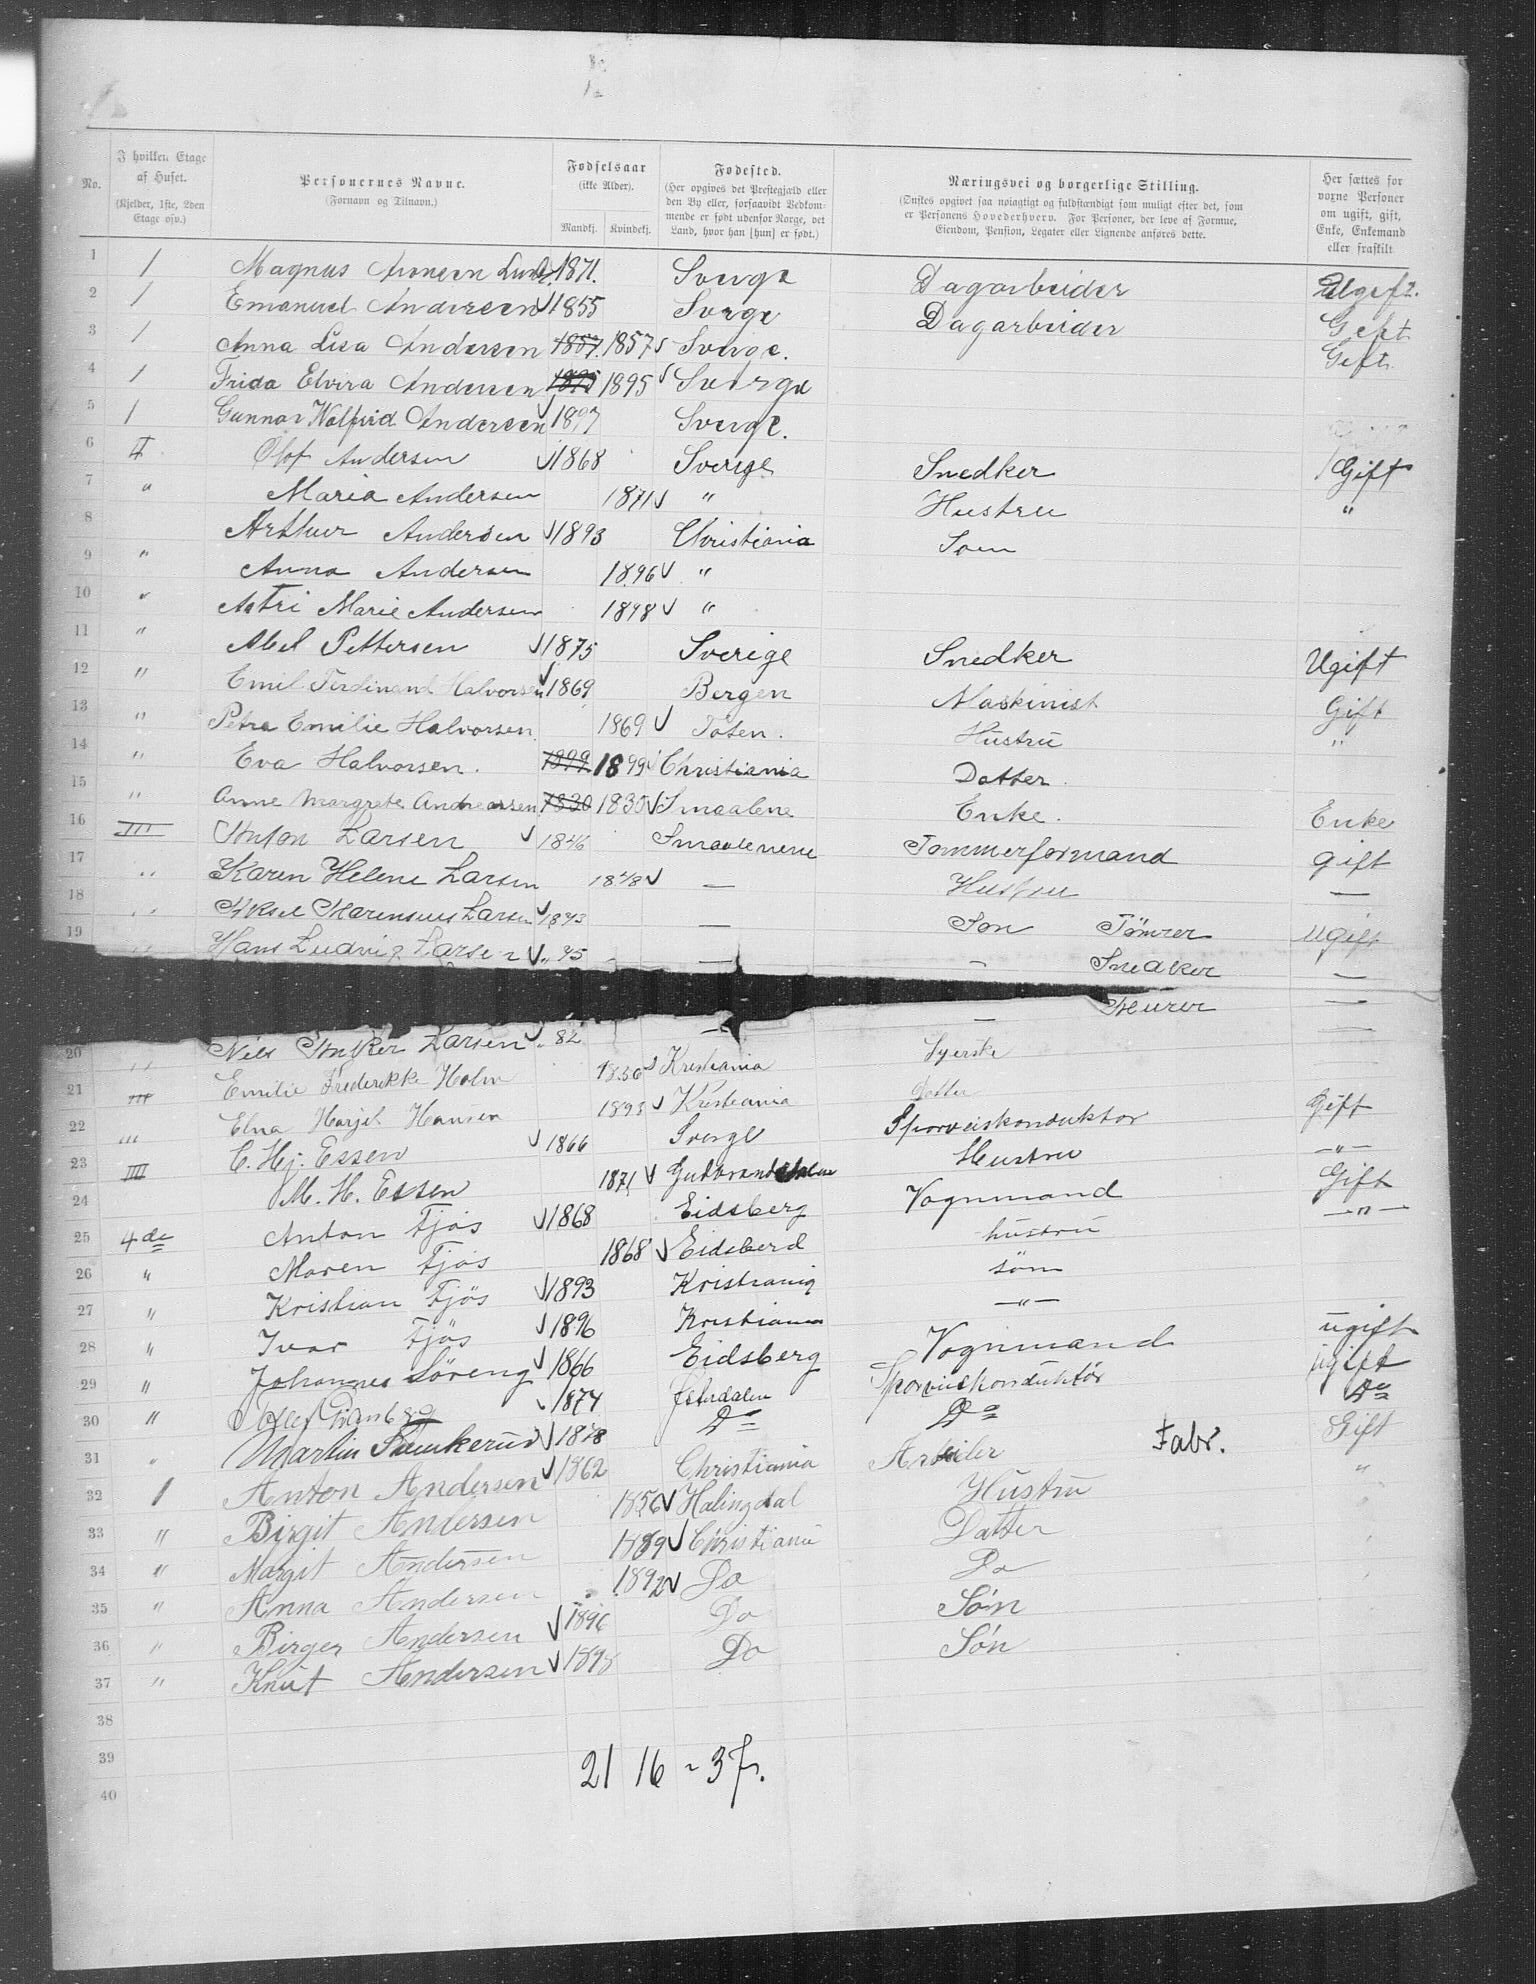 No. I hvilken Etage af Huset. (Kjelder, 1ste, 2den Etage osv.) Personernes Navne. (Fornavn og Tilnavn.) Fødselsaar (ikke Alder). Mandkj. Kvindekj. Fødested. (Her opgives det Prestegjæld eller den By eller, forsaavidt Vedkommende er født udenfor Norge, det Land, hvor han [hun] er født.) Næringsvei og borgerlige Stilling. (Ønskes opgivet saa nøiagtigt og fuldstændigt som muligt efter det, som er Personens Hovederhverv. For Personer, der leve af Formue, Eiendom, Pension, Legater eller Lignende anføres dette. Her sættes for voxne Personer om ugift, gift, Enke, Enkemand eller fraskilt
1 / Magnus 1871. Sverge Dagarbeider Ugeft.
2 / Emanuel Andersen 1855 Sverge Dagarbeider Geft
3 / Anna Lisa Andersen 1857 1857 Sverge. Geft
4 / Frida Elvira Andersen 1895 1895 Sverge
5 / Gunnar Walfrid Andersen 1897 Sverge.
6 II Olof Andersen 1868 Sverige Snedker Gift
7 " Maria Andersen 1871 " Hustru "
8 Arthur Andersen 1893 Christiania Søn
9 " Anna Andersen 1896 "
10 " Astri Marie Andersen 1898 "
11 " Abel Pettersen 1875 Sverige Snedker Ugift
12 " Emil Ferdinand Halvorsen 1869 Bergen Maskinist Gift
13 " Petra Emilie Halvorsen 1869 Toten. Hustru "
14 " Eva Halvorsen. 1899 1899 Christiania Datter.
15 " Anne Margrete Andreassen 1830 1830 Smaalene Enke. Enke
16 III Anton Larsen 1846 Smaalenene Tømmerformand gift
17 " Karen Helene Larsen 1848 — Hustru —
18 " Aksel Marensius Larsen 1873 — Søn Tømrer ugift
19 " Hans Ludvig Larsen " 75 — — Snedker —
— Murer —
20 " Nils Anker Larsen " 82 —
21 III Emilie Frederikke Holm 1856 Kristiania Syerske
22 " Elna Harjet Hansen 1893 Kristiania Datter
23 IIII C. Hj. Essen 1866 Sverge Sporveiskonduktør Gift
24 M. H. Essen 1871 Gudbrandsdalen Hustru —"—
25 4de Anton Fjøs 1868 Eidsberg Vognmand Gift
26 " Maren Fjøs 1868 Eidsberd hustru —"—
27 " Kristian Fjøs 1893 Kristiania søn
28 " Ivar Fjøs 1896 Kristiania —"—
29 " Johannes Søreng 1866 Eidsberg Vognmand ugift
30 " 1874 Østerdalen Sporveiskonduktør ugift
31 " Martin 1878 Do Do Do
32 1 Anton Andersen 1862 Christiania Arbeider Fabr. Gift
33 " Birgit Andersen 1856 Halingdal Hustru "
34 " Margit Andersen 1889 Christiania Datter
35 " Anna Andersen 1892 Do Do
36 " Birger Andersen 1896 Do Søn
37 " Knut Andersen 1898 Do Søn
38
39
40
21 16 - 3 f.